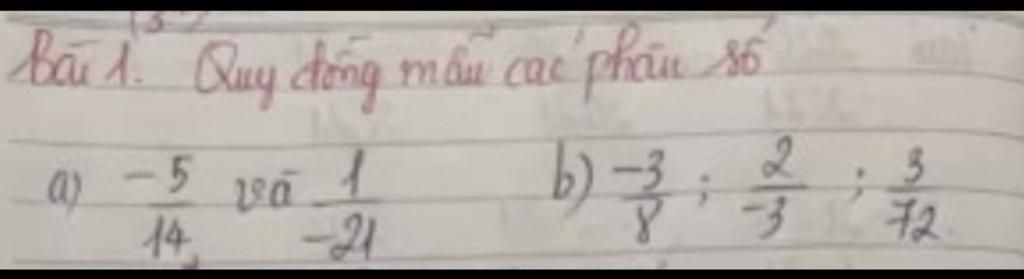 Bài 1. Quy đồng mẫu các phân số
a) -5/14 và 1/-21 b) -3/8 ; 2/-3 ; 3/72